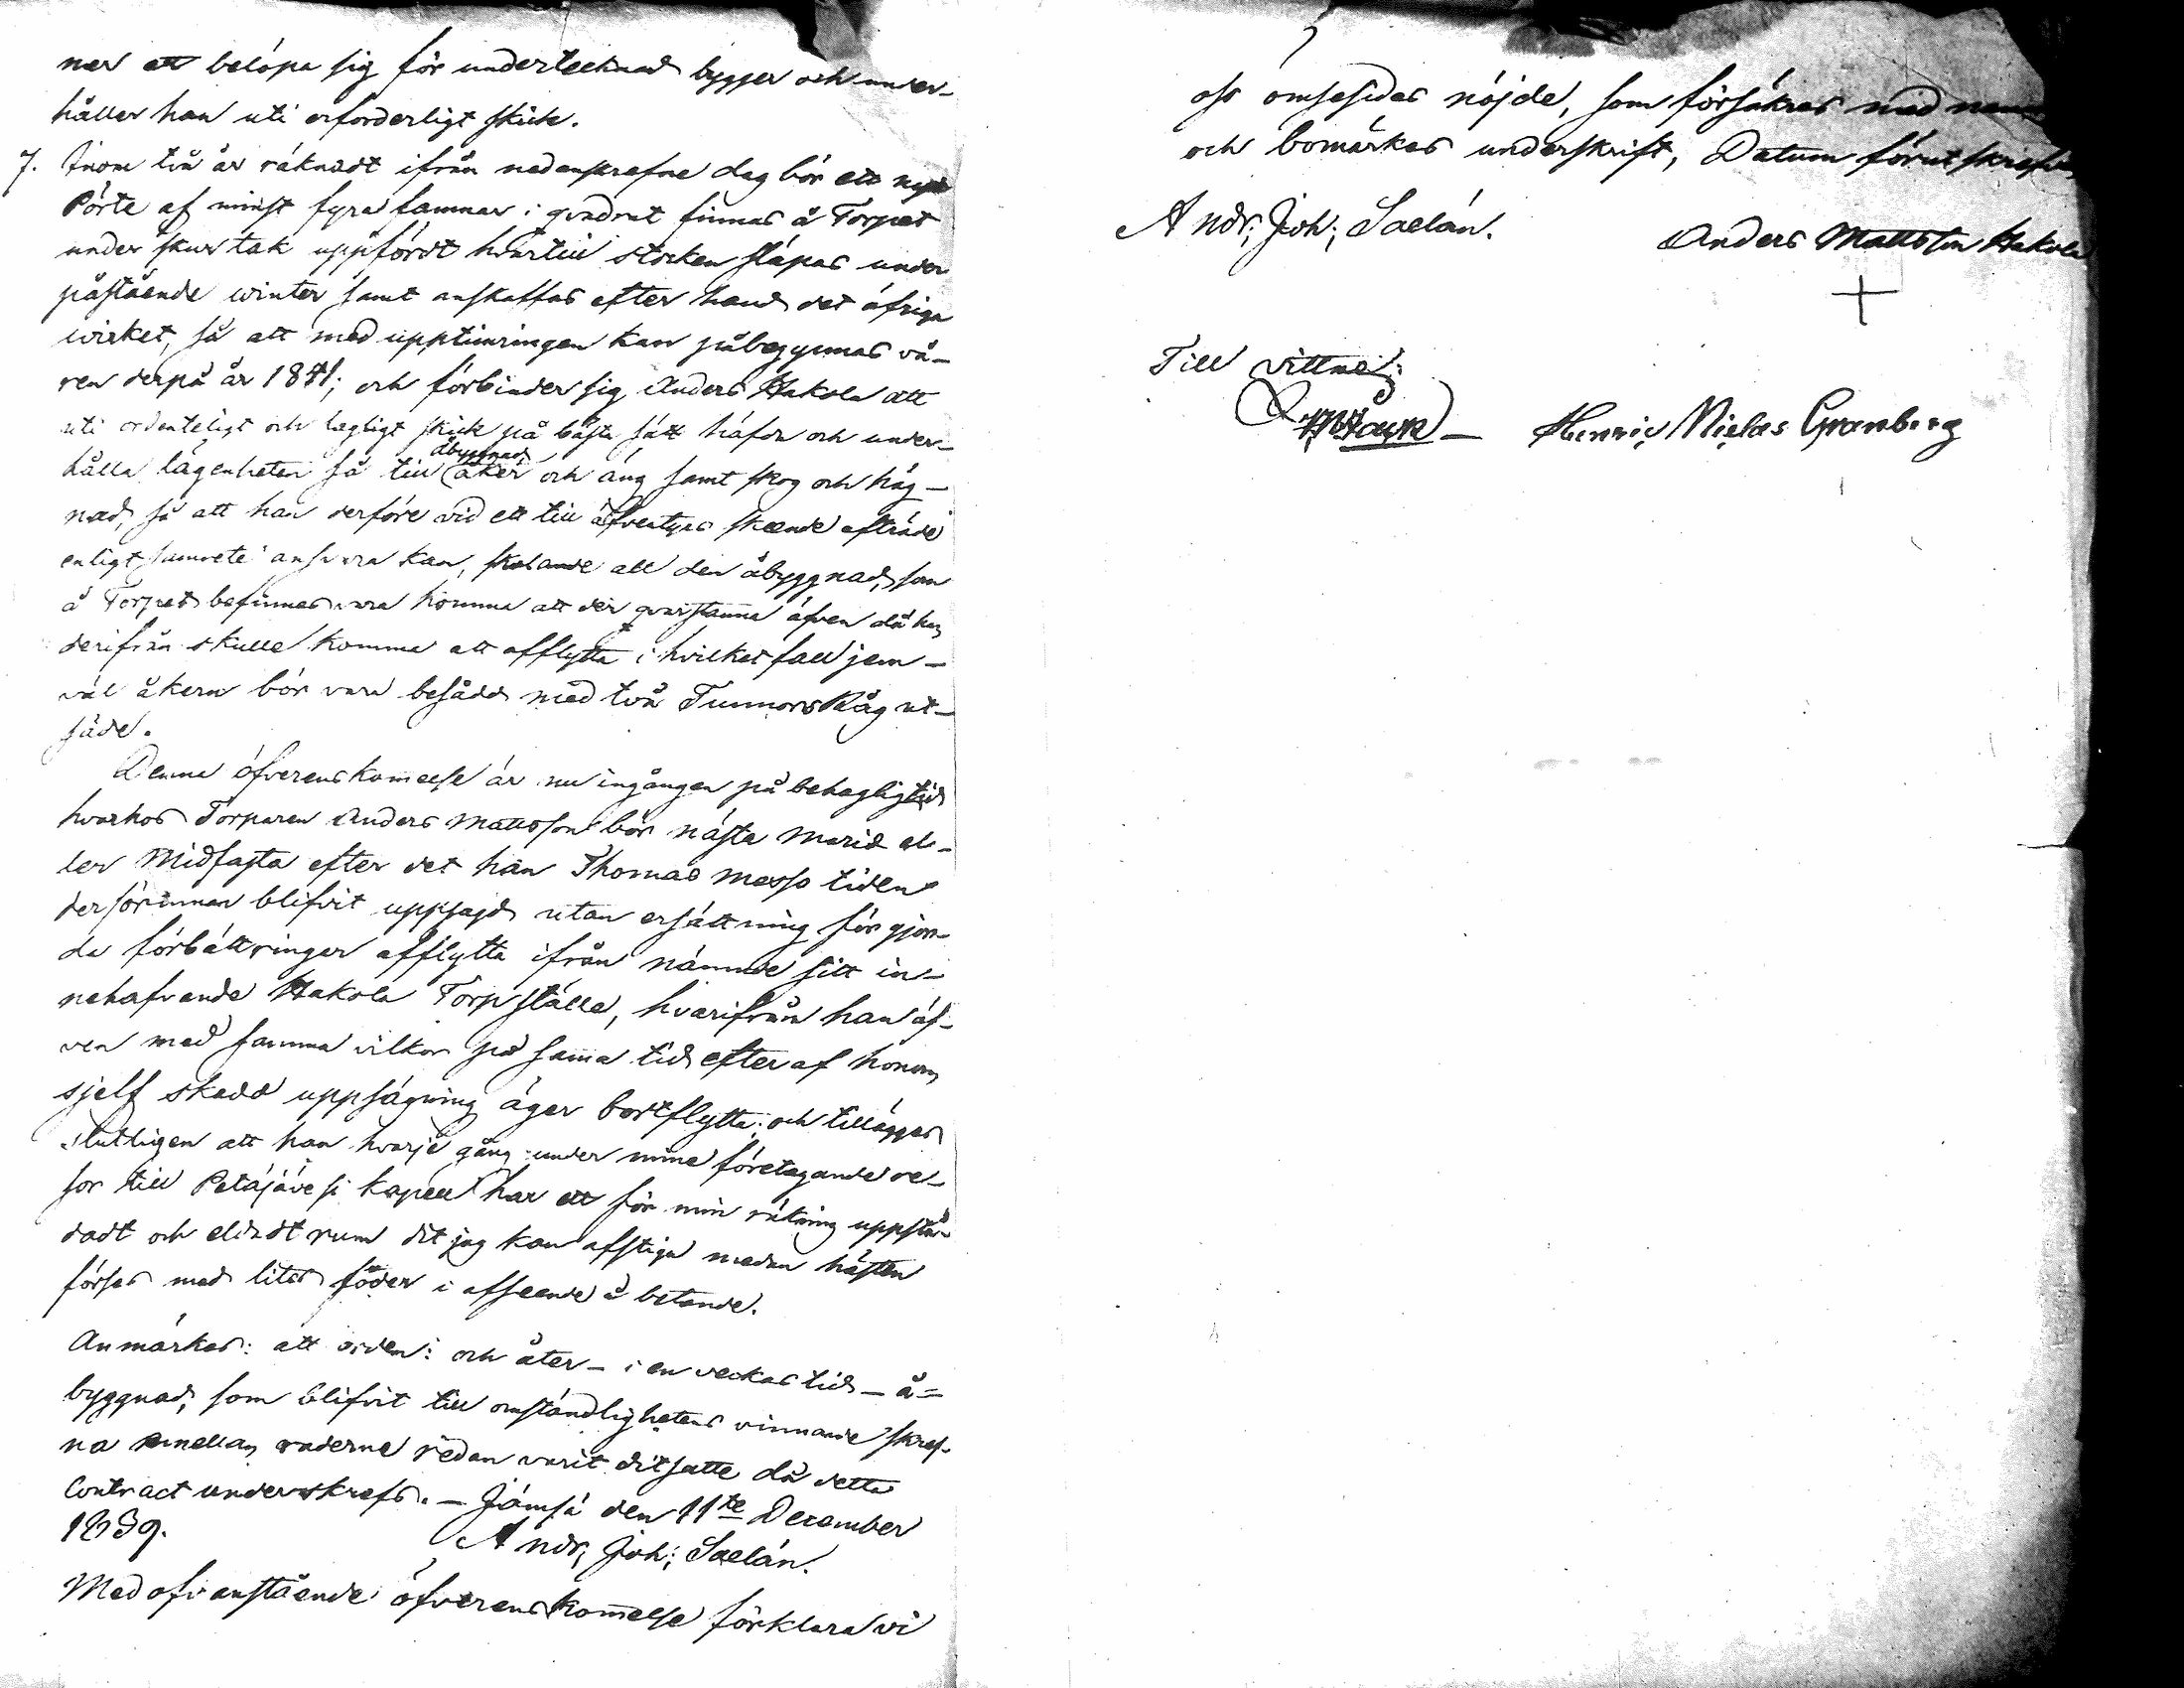 ner att belöpa sig för undertecknad bygger och under-
håller han uti erforderligt skick.
7. Inom två år räknadt ifrån nedanskrefne dag bör ett nytt
Pörte af minst fyra famnar i qvadrat finnas å Torpet
under skurtak uppfördt hvartill stocken släpas under
påstående winter samt anskaffas efter hand det öfriga
wirket, så att med upptimringen kan påbegynnas vå-
ren derpå år 1841; och förbinder sig Anders Hakola att
uti ordenteligt och lagligt skick på bästa sätt häfda och under-
hålla lägenheten så till åbyggnad åker och äng samt skog och häg-
nad, så att han derföre vid ett till äfventyrs skeende afträde
enligt samvete ansvara kan, skolande all den åbyggnad, som
å Torpet befinnes vara komma att der qvarstanna äfven då han
derifrån skulle komma att afflytta i hvilket fall jem-
väl åkern bör vara besådd med två Tunnors Råg ut-
säde.
Denna öfverenskommelse är nu ingången på behaglig tid
hvarhos Torparen Anders Mattsson bör nästa Mariæ el-
ler Midfasta efter det han Thomas messo tiden
derförinnan blifvit uppsagd utan ersättning för gjor-
da förbättringar afflytta ifrån nämnde sitt in-
nehafvande Hakola Torpställe, hvarifrån han äf-
ven med samma vilkor på samma tid efter af honom
sjelf skedd uppsägning äger bortflytta; och tillägges
slutligen att han hvarje gång under mine företagande re-
sor till Petäjävesi kapell har ett för min räkning uppstä-
dadt och eldadt rum dit jag kan afstiga medan hästen
förses med litet föder i afseende å betande.
Anmärkes: att orden: och åter - i en veckas tid - å=
byggnad, som blifvit till omständlighetens vinnande skref-
na emellan raderne redan varit ditsatte då detta
Contract underskrefs. - Jämsä den 11te December
1839.
Andr; Joh; Saelán.
Med ofvanstående öfverenskommelse förklara vi
oss ömsesides nöjde, som försäkras med namn
och bomärkes underskrift, Datum förut skrefvet
Andr; Joh; Saelán.
Anders Mattsson Hakola
Till vittne:
Henric Niclas Granberg